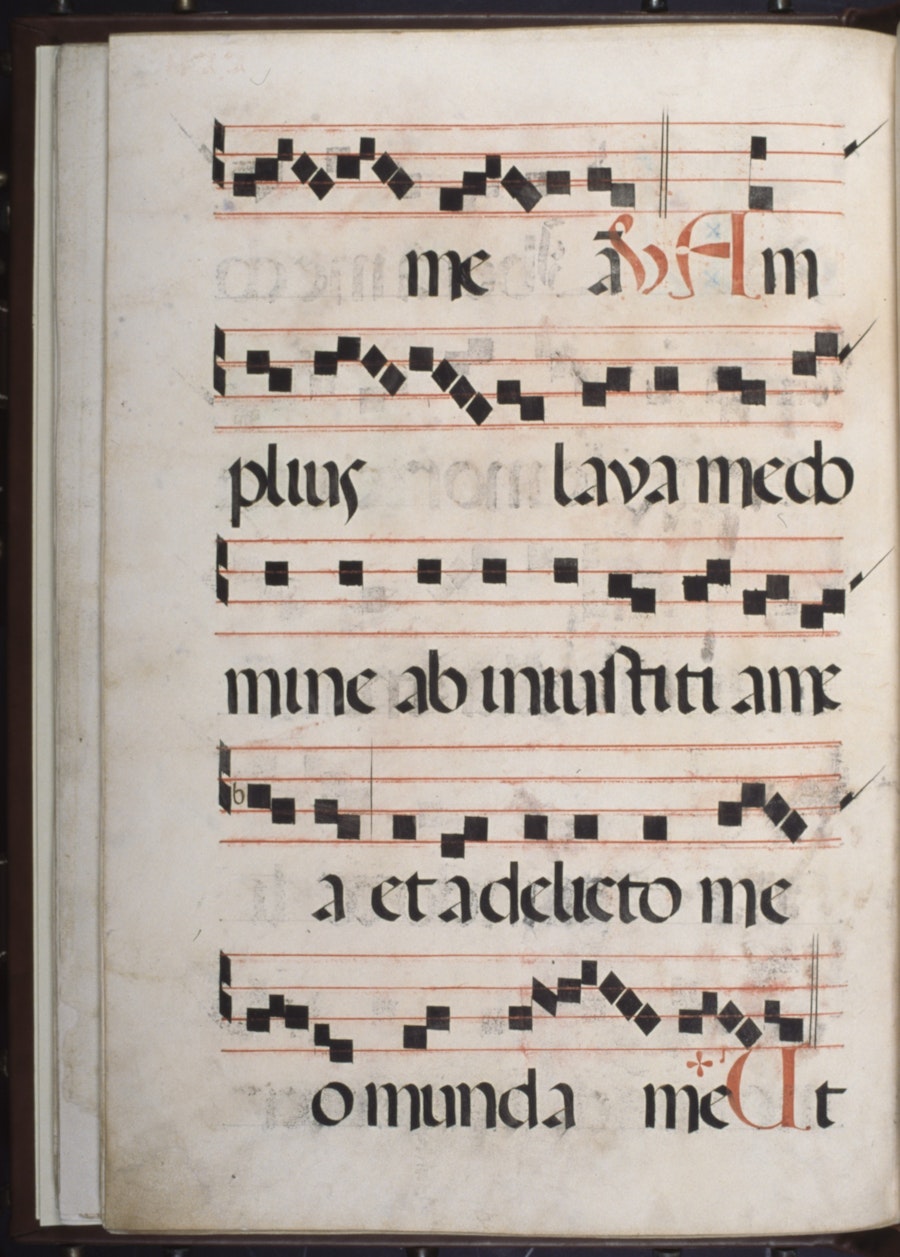 me ā ℣ Am
plius lava me do
mine ab iniuſtiti a me
a et a delicto me
o munda me * Ut